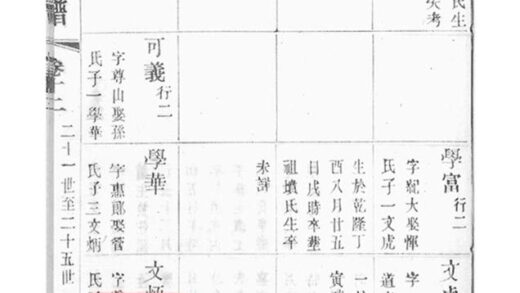 氏生
失考
可義 行二
字尊山娶孫
氏子一學華
學富 行二
大娶惲
氏子一文虎
生於乾隆丁
酉八月廿五
日戌時卒塟
祖墳氏生卒
未詳
學華
字惠郎娶管
氏子三文炳
文虎
字
道
寅
文炳
字
氏
譜
卷十二
二十一世至二十五世